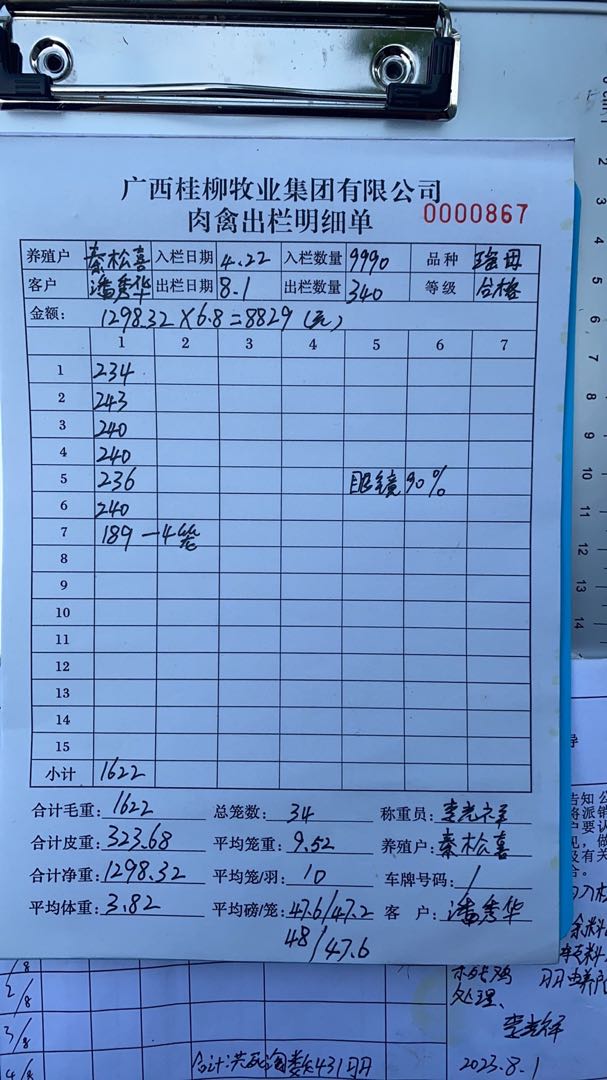 广西桂柳牧业集团有限公司
肉禽出栏明细单 0000867
养殖户 秦松喜 入栏日期 4.22 入栏数量 9990 品种 瑶母
客户 潘秀华 出栏日期 8.1 出栏数量 340 等级 合格
金额: 1298.32×6.8=8829(元)
1 2 3 4 5 6 7
1 234
2 243
3 240
4 240
5 236 眼镜90%
6 240
7 189 —4笼
8
9
10
11
12
13
14
15
小计 1622
合计毛重: 1622 总笼数: 34 称重员: 李光祥
合计皮重: 323.68 平均笼重: 9.52 养殖户: 秦松喜
合计净重: 1298.32 平均笼/羽: 10 车牌号码: /
平均体重: 3.82 平均磅/笼: 47.6/47.2 客户: 潘秀华
48/47.6
2/8
3/8
4/8
处理、
李光祥
2023.8.1